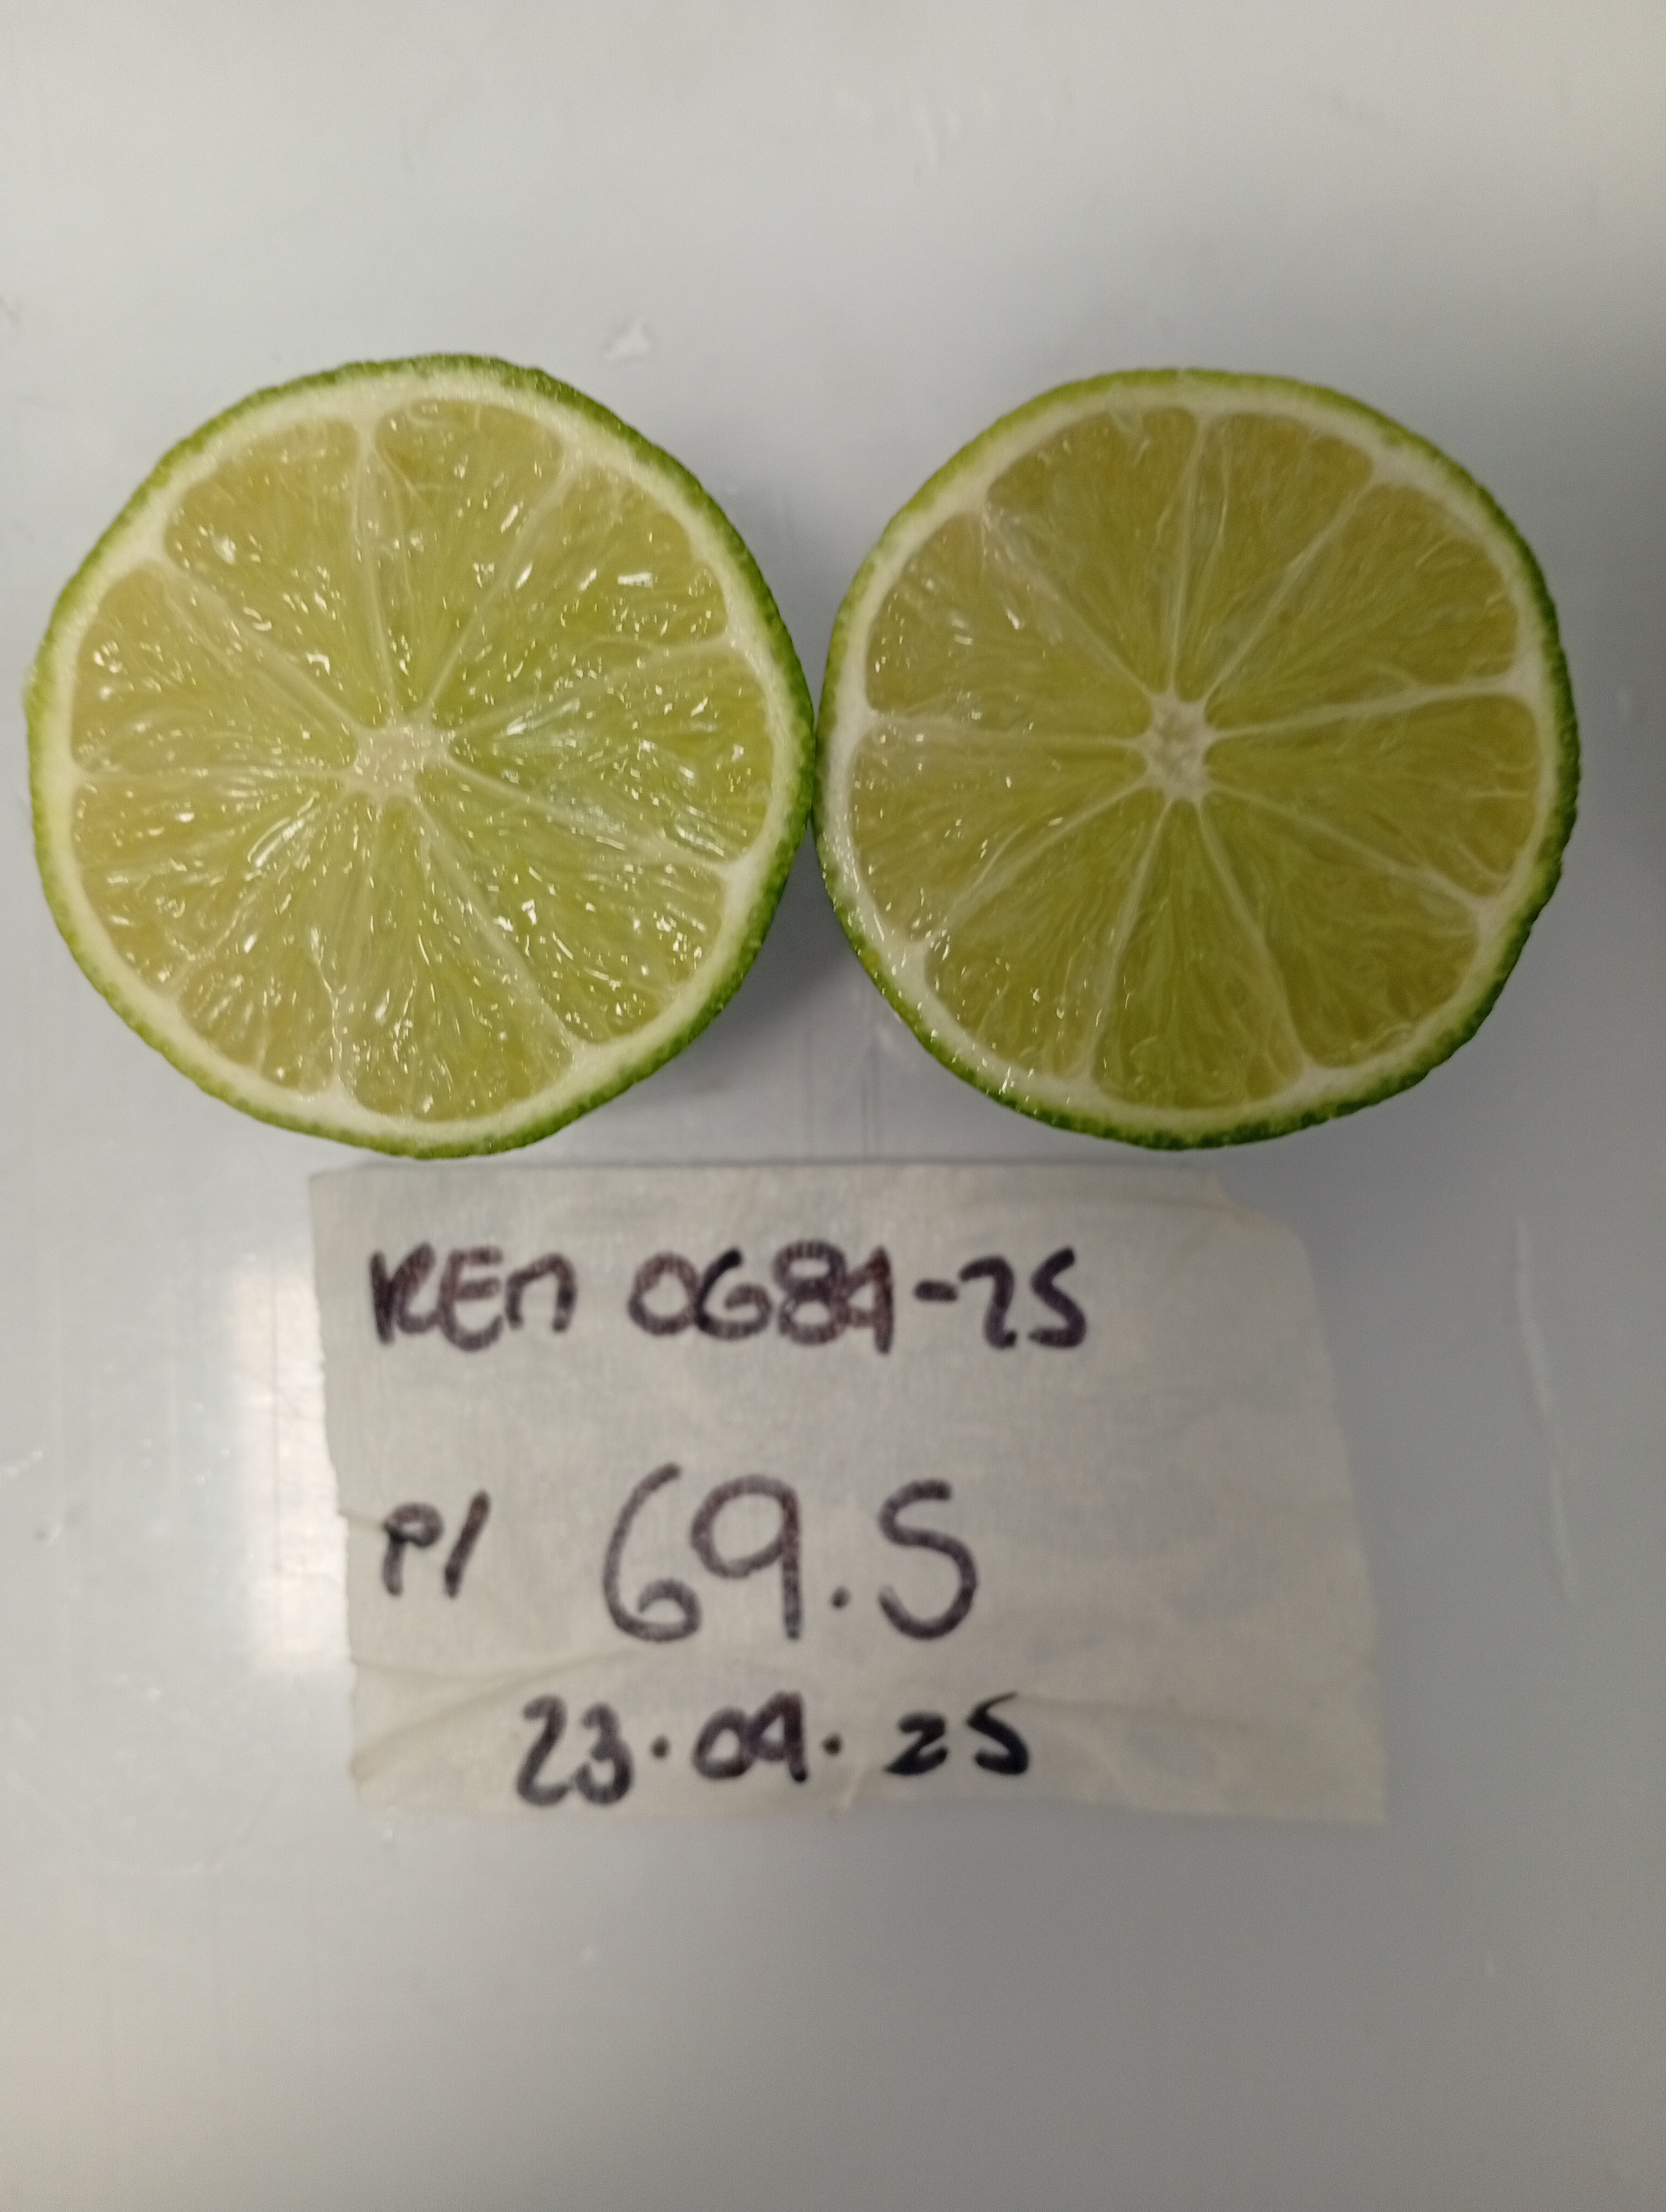 REM 0684-25
P/ 69.5
23.04.25